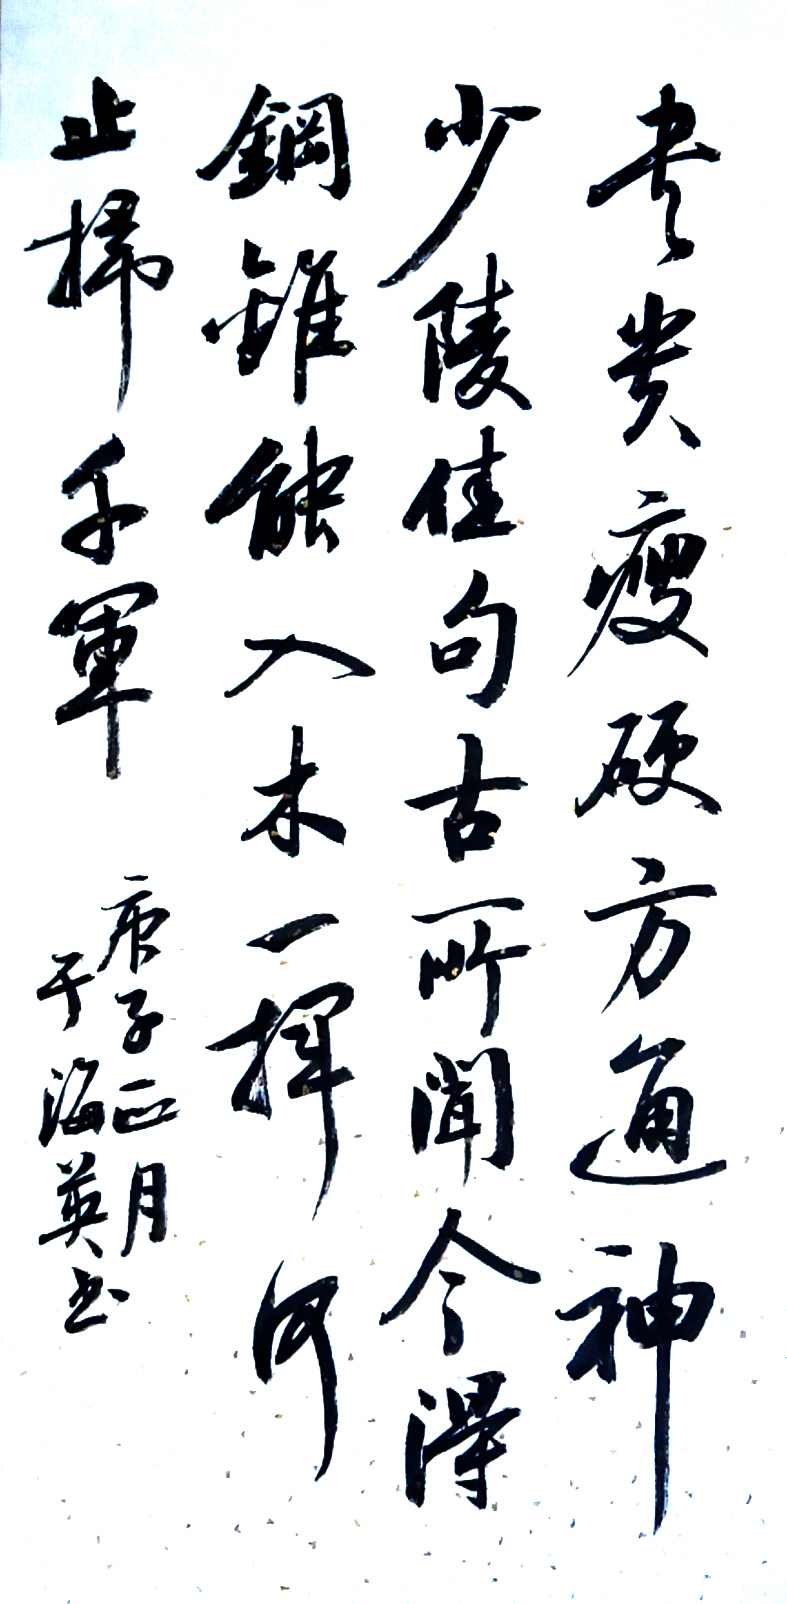 书贵瘦硬方通神
少陵佳句古所闻今得
鋼錐能入木一揮何
止掃千軍
庚子正月
于海英书